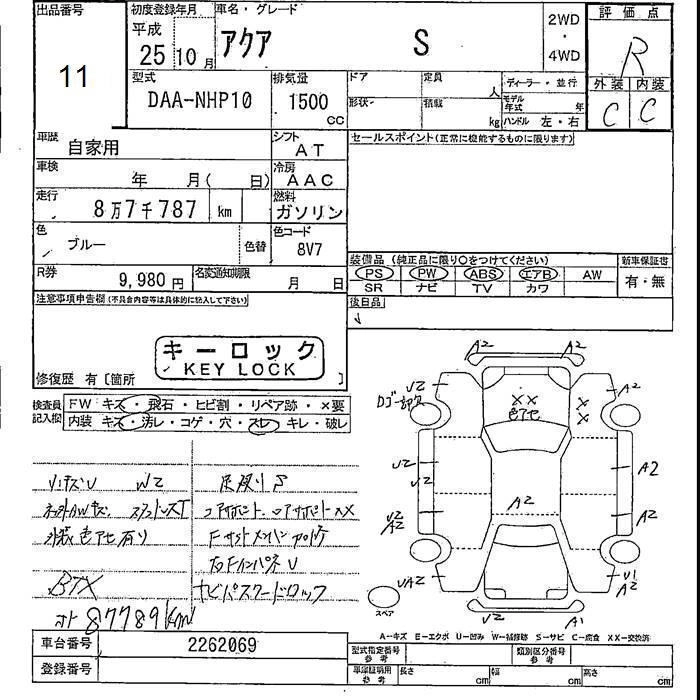 出品番号
11
初度登録年月
平成
25 10 月
車名・グレード
アクア S
2WD
・
4WD
評価点
R
外装 内装
C C
型式
DAA-NHP10
排気量
1500
CC
ドア
定員
人
ディーラー・並行
形状
積載
kg
モデル年式 年
ハンドル 左・右
車歴
自家用
シフト
AT
セールスポイント(正常に機能するものに限ります)
車検
年 月( 日)
冷房
AAC
走行
8万7千787 km
燃料
ガソリン
色
ブルー
色替
色コード
8V7
装備品 (純正品に限り○をつけてください)
新車保証書
PS PW ABS エアB AW
有・無
SR ナビ TV カワ
R券
9,980 円
名変通知期限
月 日
後日品
注意事項申告欄(不具合内容等は具体的に記入して下さい)
キーロック
KEY LOCK
修復歴 有〔箇所 〕
検査員記入欄
FW キズ・飛石・ヒビ割・リペア跡・×要
内装 キズ・汚レ・コゲ・穴・スレ・キレ・破レ
小キズU W2
外装色アセ有り
BTX
87789km
下廻りS
ナビパスワードロック
A2 A2
U2
A2
××
色アセ
×
×
U2
U2
A2
A2
A2
U2
A2
UA2
U1
A2
U2
A1
スペア
A-キズ E-エクボ U-凹み W-補修跡 S-サビ C-腐食 XX-交換済
車台番号
2262069
登録番号
型式指定番号
参考
類別区分番号
参考
車庫証明用
参考
長さ cm
幅 cm
高さ cm